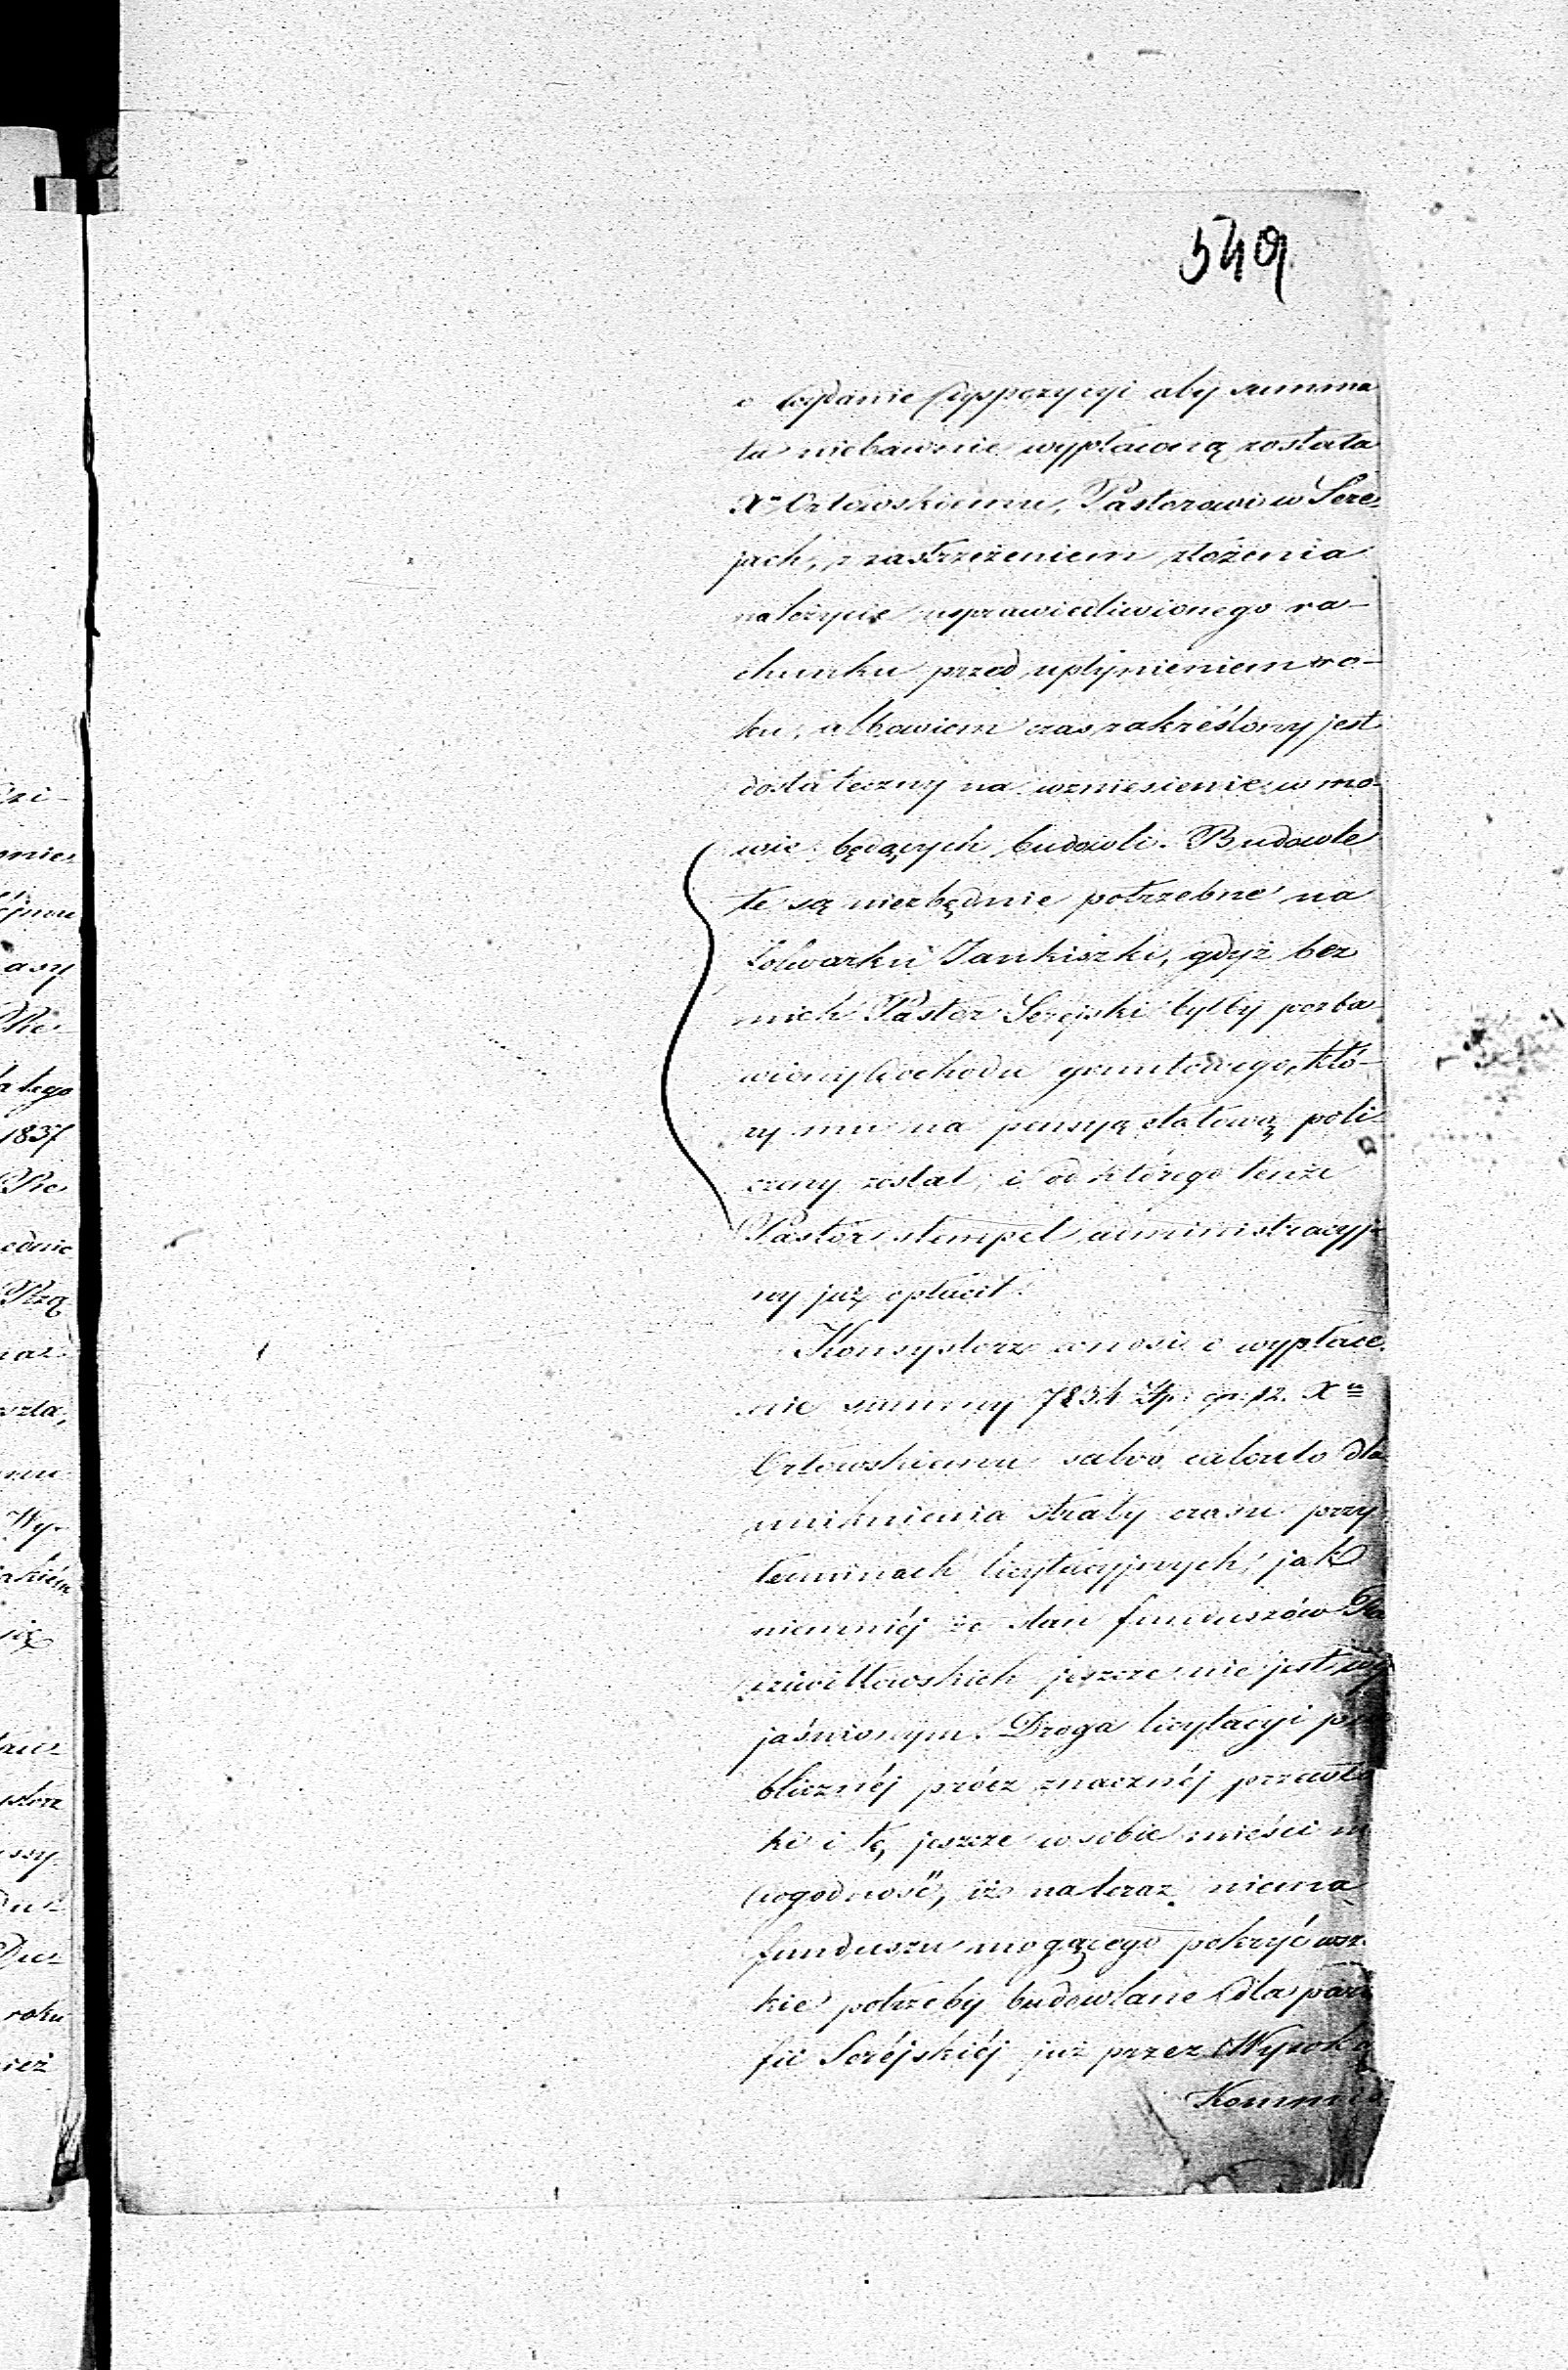 549
o wydanie dyspozycyi aby summa
ta niebawnie wypłaconą została
Xu Orłowskiemu, Pastorowi w Sere-
jach, z zastrzeżeniem złożenia
należycie usprawiedliwionego ra-
chunku przed upłynieniem ro-
ku, albowiem czas zakreślony jest
dostateczny na wzniesienie w mo-
wie będących budowli. Budowle
te są niezbędnie potrzebne na
folwarku Jankiszki, gdyż bez
nich Pastor Serejski byłby pozba-
wiony dochodu gruntowego, któ-
ry mu na pensyą etatową poli-
czony został, i od którego tenże
Pastor stempel administracyj-
ny już opłacił.
Konsystorz wnosi o wypłace-
nie summy 7834 Zł. gr. 12. Xu
Orłowskiemu salvo calculo dla
uniknienia straty czasu przy
terminach licytacyjnych, jak
niemniéj że stan funduszów Ra
dziwiłłowskich jeszcze nie jest wy
jaśnionym. Droga licytacyi pu
blicznéj prócz znacznéj przewło
ki i tę jeszcze w sobie mieści n
dogodność, iż na teraz niema
funduszu mogącego pokryć wsz
kie potrzeby budowlane dla para
fii Seréjskiéj już przez Wysoką
Kommis
czi-
asy
łatego
1837
Wy-
roku